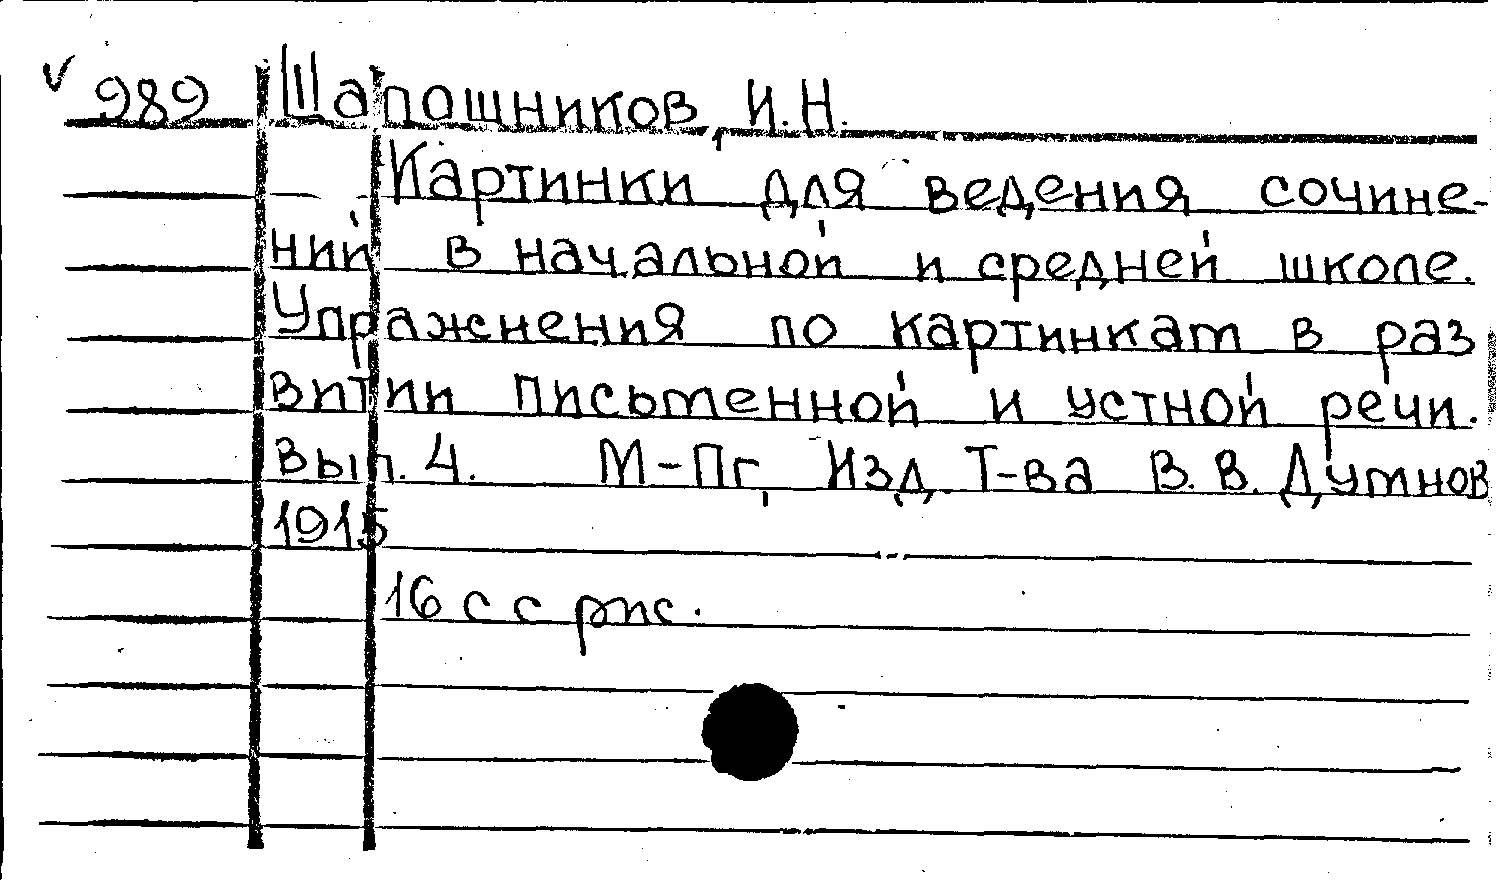 v 989 Шапошников, И.Н.
Картинки для ведения сочине-
ний в начальной и средней школе.
Упражнения по картинкам в раз
витии письменной и устной речи.
Вып. 4. М-Пг, Изд. Т-ва В.В. Думнов
1915
16 с с рис.